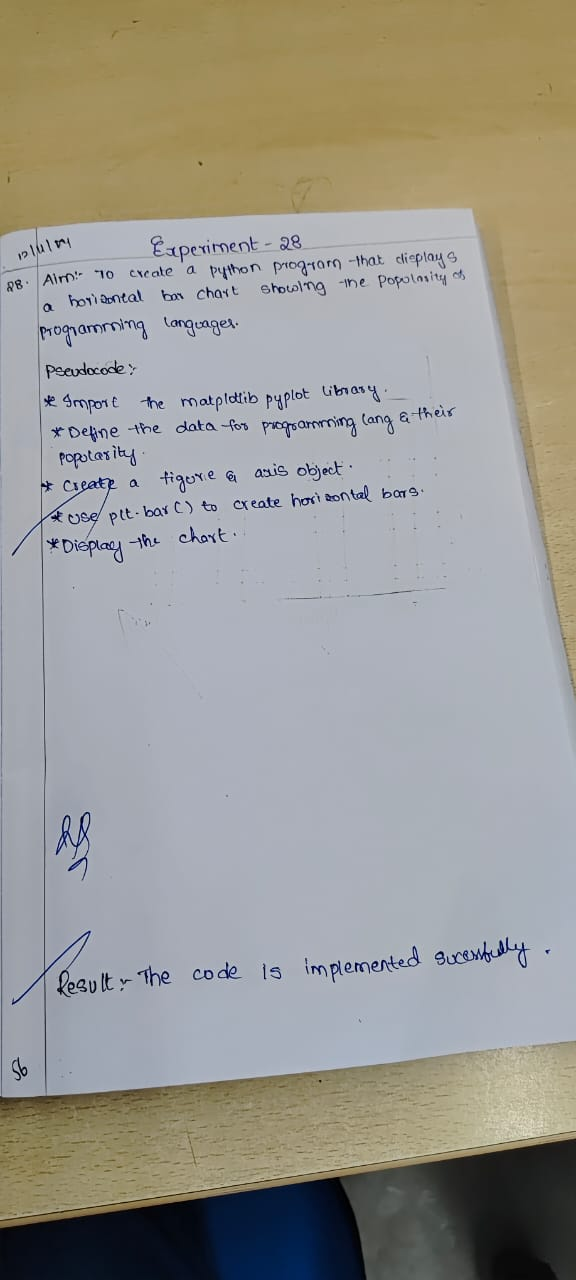 Experiment - 28
28. Aim:- To create a python program that displays
a horizontal bar chart showing the Popolarity of
programming languages.
Pseudocode:-
* Import the matplotlib pyplot library.
* Define the data for programming lang & their
popolarity.
* Create a figure & axis object.
* Use plt.bar() to create horizontal bars.
* Display the chart.
Result:- The code is implemented sucessfully.
56